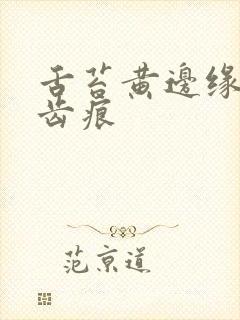 舌苔黄邊缘
齿痕
范京道